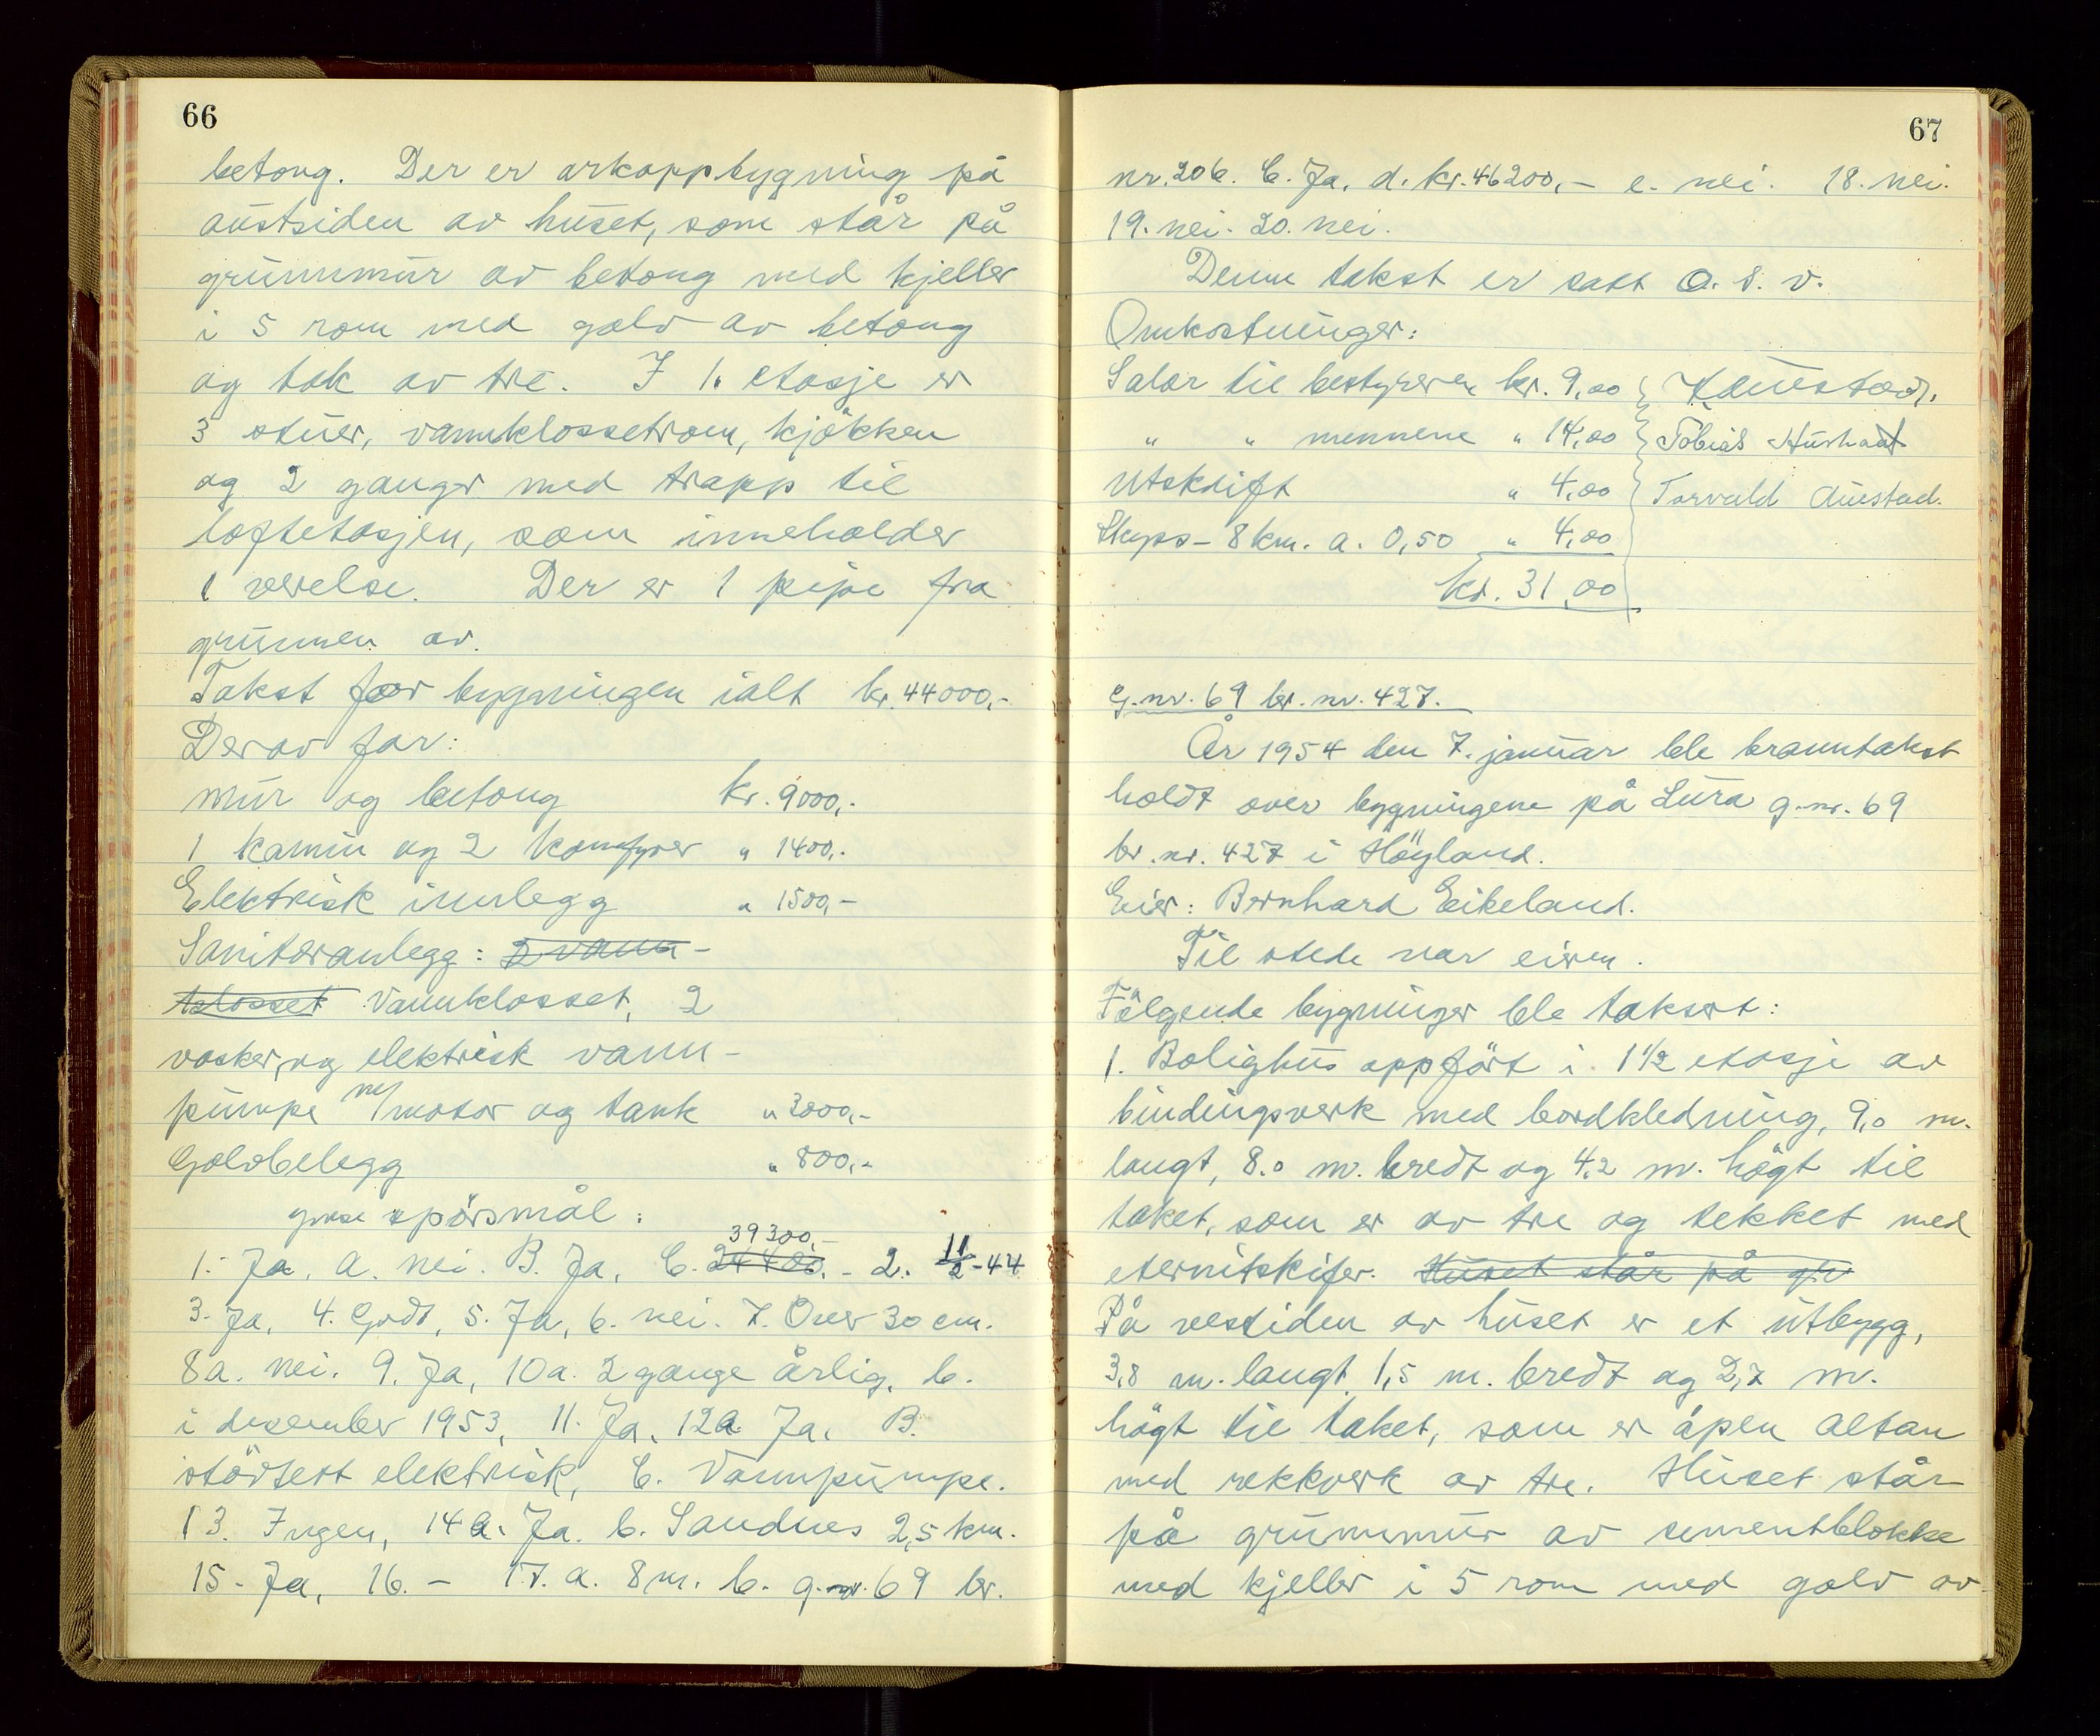 66
betong. Der er arkoppbygning på
austsiden av huset, som står på
grunnmur av betong med kjeller
i 5 rom med golv av betong
og tak av tre. I 1. etasje er
3 stuer, vannklossetrom, kjökken
og 2 ganger med trapp til
loftetasjen, som inneholder
1 verelse. Der er 1 pipe fra
grunnen av.
Takst for bygningen ialt kr. 44000,-
Derav for:
mur og betong kr. 9000,-
1 kamin og 2 komfyrer " 1400,-
Elektrisk innlegg " 1500,-
Sanitæranlegg: 2 vann-
klosset Vannklosset, 2
vasker, og elektrisk vann-
pumpe m/motor og tank " 3000,-
Golvbelegg " 800,-
spörsmål:
39300,-
1. Ja, a. nei. B. Ja, C. 24400,- 2. 11/2-44
3. Ja, 4. Godt, 5. Ja, 6. nei. 7. Over 30 cm.
8a. nei. 9. Ja, 10a. 2 gange årlig, b.
i desember 1953, 11. Ja, 12a. Ja, B.
störtest elektrisk, C. Vannpumpe.
13. Ingen, 14a. Ja. b. Sandnes 2,5 km.
15. Ja, 16. - 17. a. 8 m. b. g.nr. 69 br.
67
nr. 206. C. Ja, d. kr. 46200,- e. nei. 18. nei.
19. nei. 20. nei.
Denne takst er satt o. s. v.
Omkostninger:
Salær til bestyreren kr. 9,00
" " mennene " 14,00 Tobias
Utskrift " 4,00 Torvald Austad.
Skyss - 8 km. a. 0,50 " 4,00
kr. 31,00
G.nr. 69 br. nr. 427.
År 1954 den 7. januar ble branntakst
holdt over bygningene på Lura g.nr. 69
br. nr. 427 i Höyland.
Eier: Bernhard Eikeland.
Til stede var eieren.
Fölgende bygninger ble taksert:
1. Bolighus oppfört i 1 1/2 etasje av
bindingsverk med bordkledning, 9,0 m.
langt, 8.0 m. bredt og 4,2 m. högt til
taket, som er av tre og tekket med
eternitskifer. Huset står på gr
På vestsiden av huset er et utbygg,
3,8 m. langt, 1,5 m. bredt og 2,7 m.
högt til taket, som er åpen altan
med rekkverk av tre. Huset står
på grunnmur av sementblokke
med kjeller i 5 rom med golv av